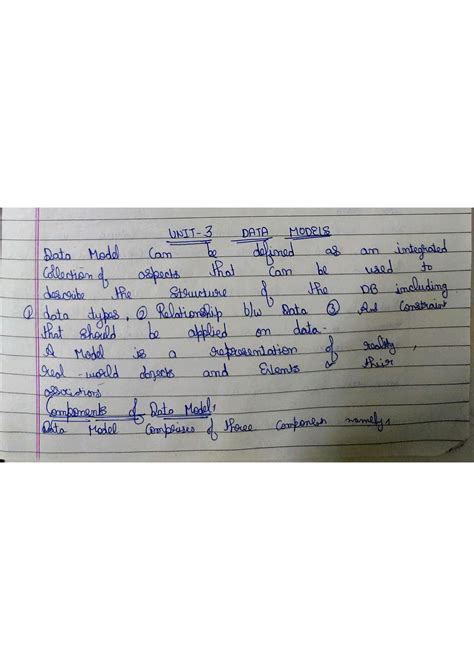 UNIT-3 DATA MODELS
Data Model Can be defined as an integrated
Collection of aspects that Can be used to
describe the Structure of the DB including
① data types, ② Relationship b/w Data ③ And Constraint
that should be applied on data.
A Model is a representation of reality,
real-world objects and Events & their
associations
Components of Data Model:
Data Model Comprises of three Component namely,